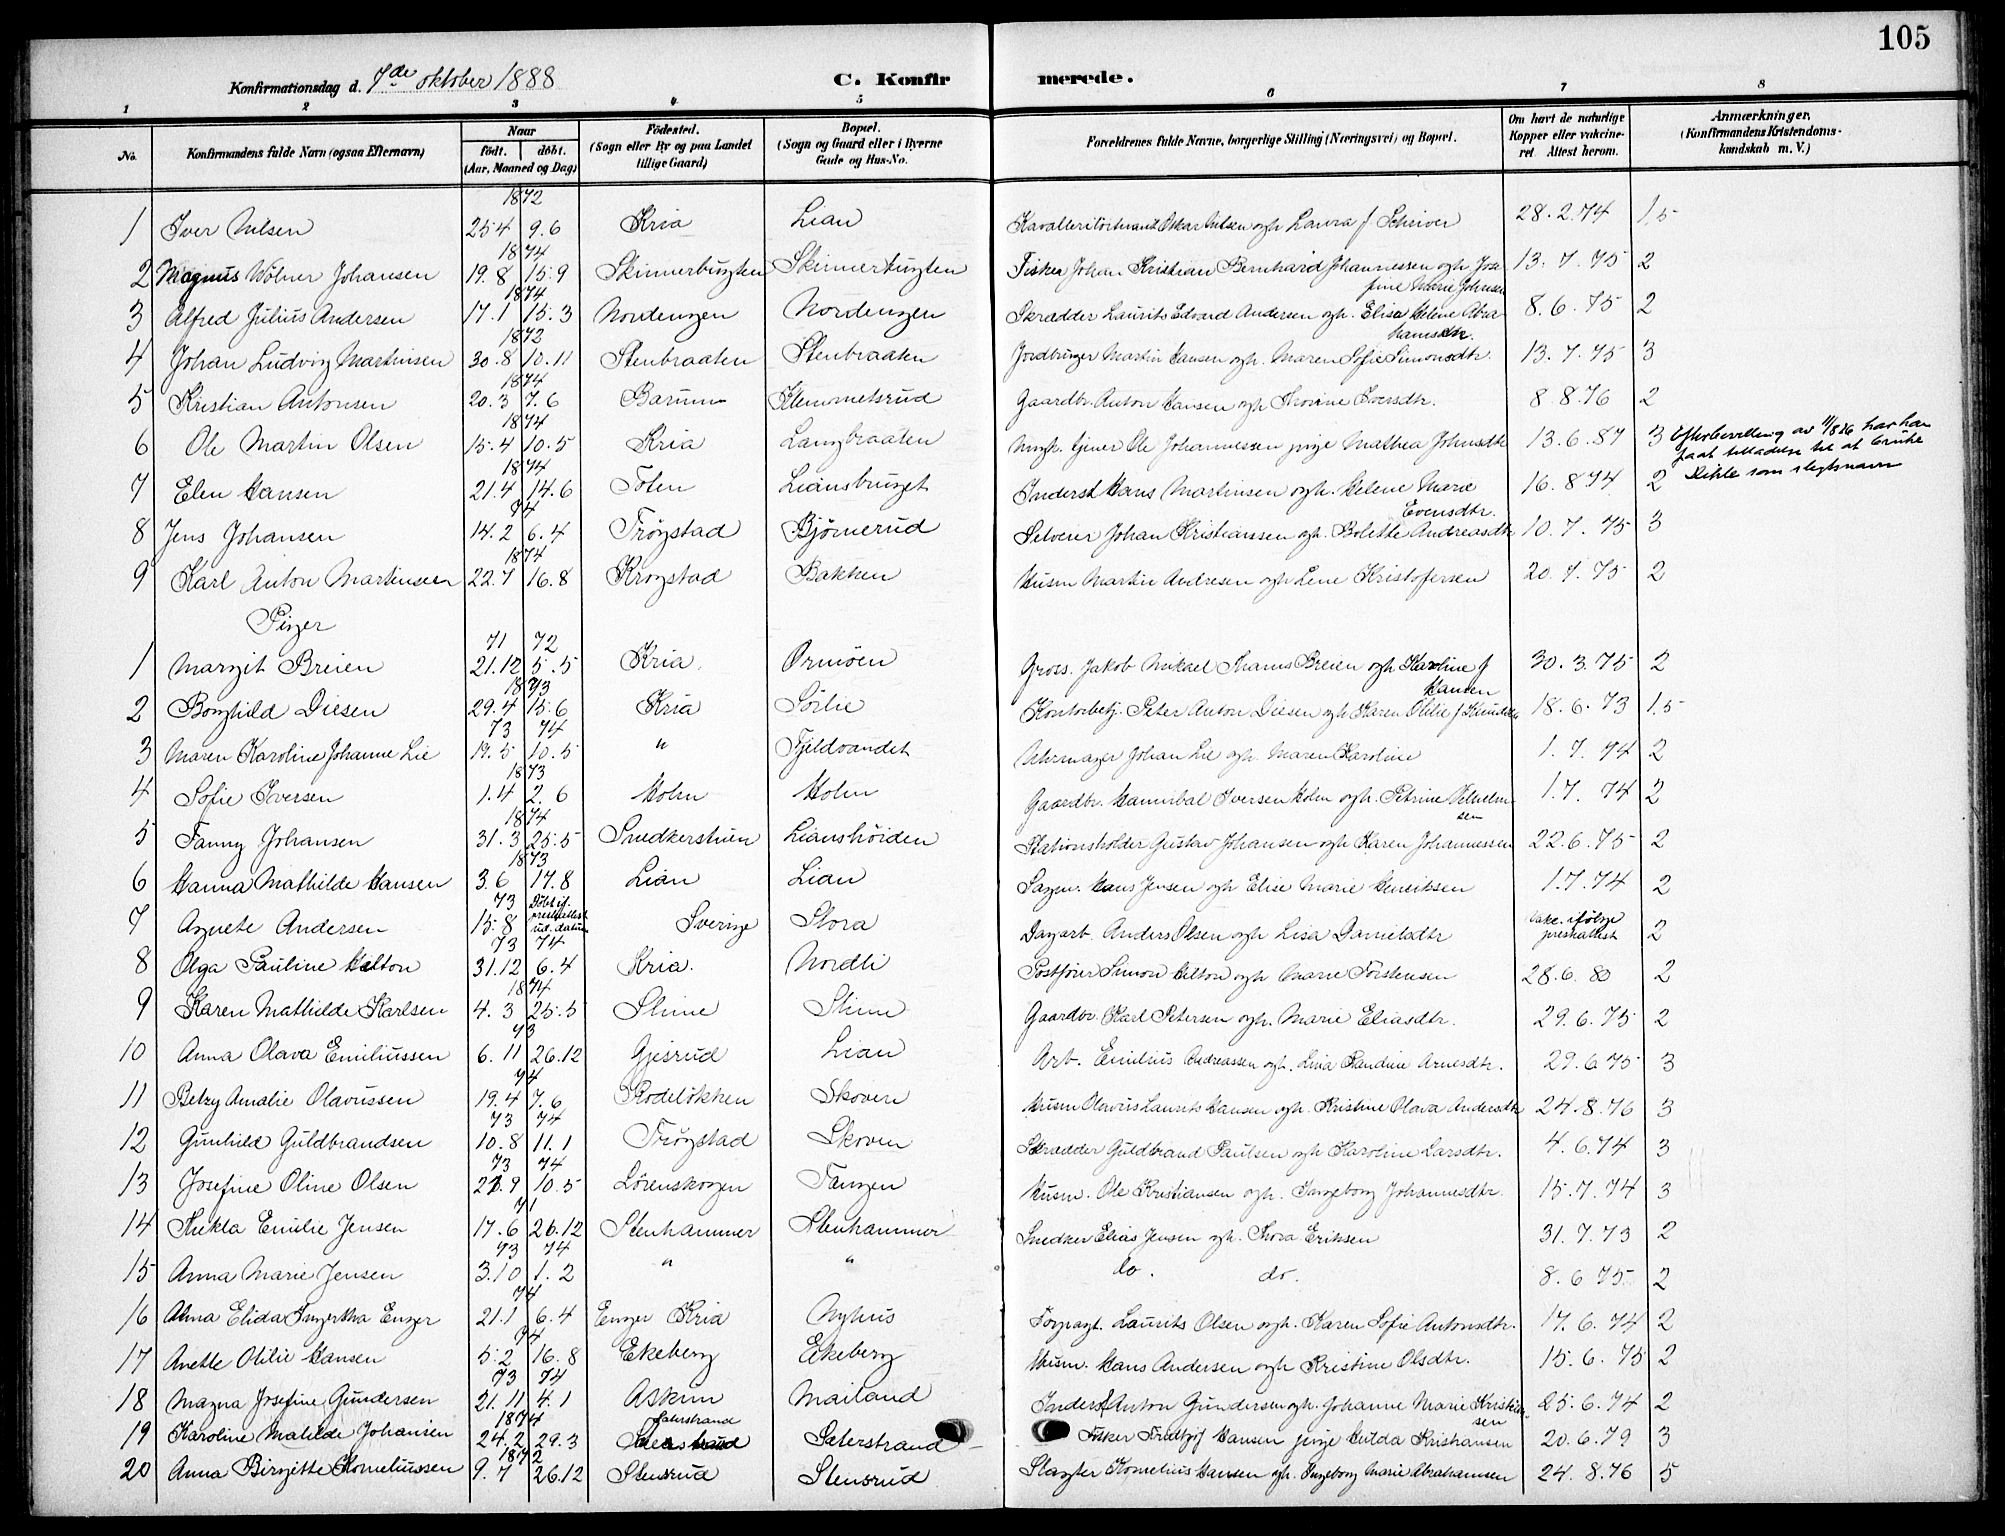 105
Konfirmationsdag d. 7de oktober 1888
C. Konfirmerede.
1 2 3 4 5 6 7 8
No. Konfirmandens fulde Navn (ogsaa Efternavn) Naar født. døbt. (Aar, Maaned og Dag) Fødested. (Sogn eller By og paa Landet tillige Gaard) Bopæl. (Sogn og Gaard eller i Byerne Gade og Hus-No. Forældrenes fulde Navne, borgerlige Stilling (Næringsvei) og Bopæl. Om havt de naturlige Kopper eller vakcineret Attest herom. Anmærkninger, (Konfirmandens Kristendomskundskab m. V.)
1872
1 Iver Nilsen 25 4 9.6 Kria Lian Oskar Nilsen ogh Laura f Schriver 28.2.74 1,5
1874
2 Magnus Wolner Johansen 19.8 15.9 Skinnerbugten Skinnerbugten Fisker Johan Kristian Bernhard Johannessen ogh Josefine Marie Johnsen 13.7.75 2
1874
3 Alfred Julius Andersen 17.1 15.3 Nordengen Nordengen Skrædder Laurits Edvard Andersen ogh. Elisa Helene Abrahamsdtr. 8.6.75 2
1872
4 Johan Ludvig Martinsen 30.8 10.11 Stenbraaten Stenbraaten Jordbruger Martin Hansen ogh. Maren Sofie Simonsdtr. 13.7.75 3
1874
5 Kristian Antonsen 20.3 7.6 Bærum Klemmetsrud Gaardbr. Anton Hansen ogh Thorine Iversdtr. 8 8.76 2
1874
6 Ole Martin Olsen 15.4 10.5 Kria Langbraaten Ole Johannessen pige Mathea Johnsdtr 13.6.87 3 Efter bevilling av har han faat tilladelse til at bruke som slegtsnavn
1874
7 Elen Hansen 21.4 14.6 Toten Liansbruget Inderst Hans Martinsen ogh. Helene Marie Evensdtr. 16.8 74 2
74
8 Jens Johansen 14.2 6.4 Trøgstad Bjørnerud Selveier Johan Kristianssen ogh. Bolette Andreasdtr 10.7.75 3
1874
9 Karl Anton Martinsen 22.7 16.8 Krogstad Bakken Husm Martin Andresen ogh Lene Kristofersen 20.7.75 2
Piger
71 72
1 Margit Breien 21.12 5.5 Kria. Ormøen Gross. Jakob Mikael Thams Breien ogh Karoline f Hansen 30.3.75 2
1873
2 Borghild Diesen 29.4 15.6 Kria Sørlie Kontorbetj. Peter Anton Diesen ogh Karen Otilie f Knudsen 18.6.73 1,5
73 74
3 Maren Karoline Johanne Lie 19.5 10.5 " Fjeldvandet Uhrmager Johan Lie ogh. Maren Karoline 1.7.74 2
1873
4 Sofie Iversen 1.4 2.6 Holm Holm Gaardbr. Hannibal Iversen Holm ogh. Petrine Vilhelmsen 1.7.74 2
1874
5 Fanny Johansen 31.3 25.5 Snedkerstuen Lianshöiden Stationsholder Gustav Johansen ogh Karen Johannessen 22.6.75 2
1873
6 Hanna Mathilde Hansen 3.6 17.8 Lian Lian Sagm. Hans Jensen ogh Elise Marie Henriksen 1.7.74 2
73
7 Agnete Andersen 15.8 Døbt if. prestattest ud. datum Sverige Stora Dagarb. Anders Olsen ogh Lisa Danielsdtr Vakc. ifølge prestattest 2
73 74
8 Olga Pauline Hilton 31.12 6.4 Kria. Nordli Postfører Simon Hilton ogh Marie Torstensen 28.6.80 2
1874
9 Karen Mathilde Karlsen 4.3 25.5 Stime Stime Gaardbr. Karl Petersen ogh. Marie Eliasdtr. 29.6.75 2
73
10 Anna Olava Emiliussen 6.11 26.12 Gjersrud Lian Arb. Emilius Andreassen ogh. Lina Randine Arnesdtr. 29.6 75 3
74
11 Betzy Amalie Olavussen 19.4 7.6 Rodeløkken Skoven Husm Olavus Laurits Hansen ogh. Kristine Olava Andersdtr 24.8.76 3
73 74
12 Gunhild Guldbrandsen 10.8 11.1 Trøgstad Skoven Skrædder Guldbrand Paulsen ogh Karoline Larsdtr. 4.6.74 3
73 74
13 Josefine Oline Olsen 28.9 10.5 Lørenskogen Tangen Husm. Ole Kristiansen ogh. Ingeborg Johannesdtr. 15.7.74 3
71
14 Thekla Emilie Jensen 17.6 26.12 Stenhammer Stenhammer Snedker Elias Jensen ogh. Thora Eriksen 31.7.73 2
73 74
15 Anna Marie Jensen 3.10 1.2 " " do. do. 8.6 75 2
74
16 Alma Elida Ingertha Enger 21.1 6.4 Enger Kria Nyhus Laurits Olsen ogh. Karen Sofie Antonsdtr. 17.6.74 2
74
17 Anette Otilie Hansen 5.2 16.8 Ekeberg Ekeberg Husm. Hans Andersen ogh Kristine Olsdtr. 15.6.75 2
73 74
18 Magna Josefine Gundersen 21.11 4.1 Askim Mailand Inderst Anton Gundersen ogh. Johanne Marie Kristiansen 25.6.74 2
1874
19 Karoline Matilde Johansen 24.2 29.3 Saterstrand Saterstrand Fisker Fridtjof Hansen pige Hulda Kristiansen 20.6.79 3
1872
20 Anna Birgitte Korneliussen 9.7 26.12 Stensrud Stensrud Slagter Kornelius Hansen ogh. Ingeborg Marie Abrahamsen 24.8.76 5